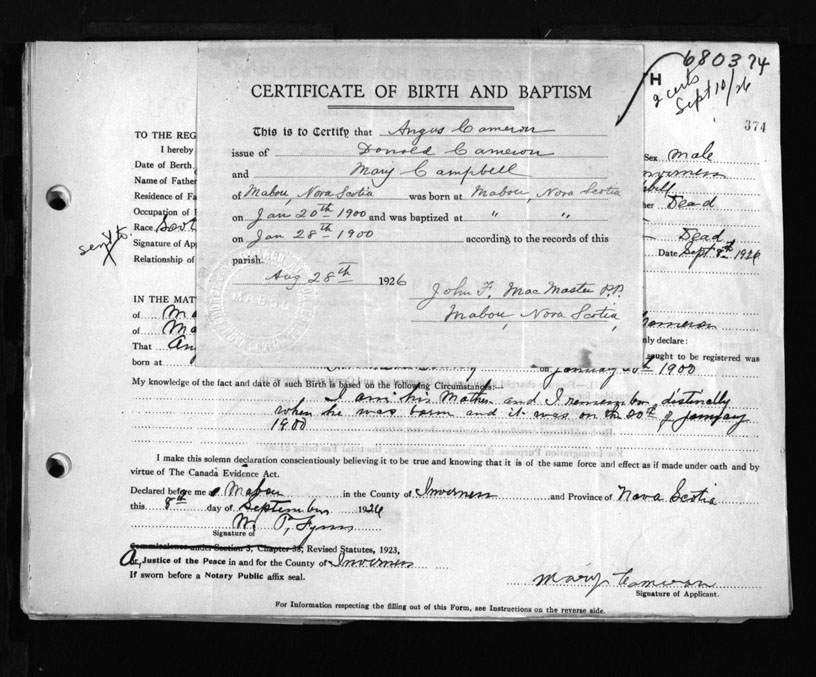 680374
2 certs
Sept 10/26
374
H
CERTIFICATE OF BIRTH AND BAPTISM
This is to Certify that Angus Cameron
issue of Donald Cameron
and Mary Campbell
of Mabou, Nova Scotia was born at Mabou, Nova Scotia
on Jan 20th 1900 and was baptized at " "
on Jan 28th 1900 according to the records of this
parish.
Aug 28th 1926
John F. MacMaster P.P.
Mabou, Nova Scotia,
MABOU
TO THE REG
I hereby
Date of Birth
Name of Father
Residence of Fa
Occupation of
Race Scot
Signature of Ap
Relationship of
Sex Male
Inverness
her Dead
Dead
Date Sept 8th 1926
IN THE MATT
of Ma
of Ma
That An
born at
Cameron
nly declare:
sought to be registered was
on January 20th 1900
My knowledge of the fact and date of such Birth is based on the following Circumstances:—
I am his Mother and I remember distinctly
when he was born and it was on the 20th of January
1900
I make this solemn declaration conscientiously believing it to be true and knowing that it is of the same force and effect as if made under oath and by
virtue of The Canada Evidence Act.
Declared before me at Mabou in the County of Inverness and Province of Nova Scotia
this 8th day of September 1926
W. P. Flynn
Signature of
Commissioner under Section 3, Chapter 38, Revised Statutes, 1923,
Or, Justice of the Peace in and for the County of Inverness
If sworn before a Notary Public affix seal.
Mary Cameron
Signature of Applicant.
For Information respecting the filling out of this Form, see Instructions on the reverse side.